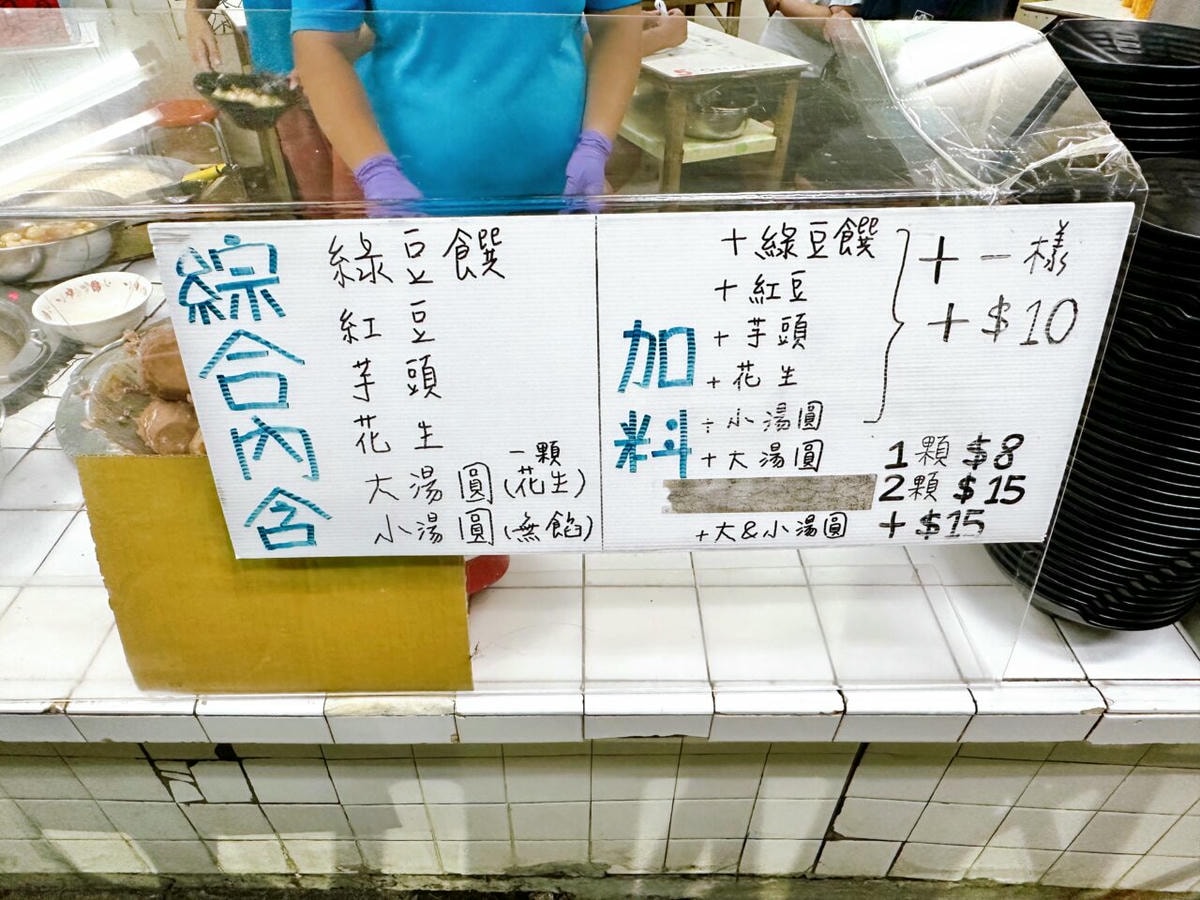 綜合內含
綠豆饌
紅豆
芋頭
花生
一顆
大湯圓(花生)
小湯圓(無餡)
加料
+綠豆饌
+紅豆
+芋頭
+花生
÷小湯圓
+一樣
+$10
+大湯圓 1顆 $8
2顆 $15
+大&小湯圓 +$15